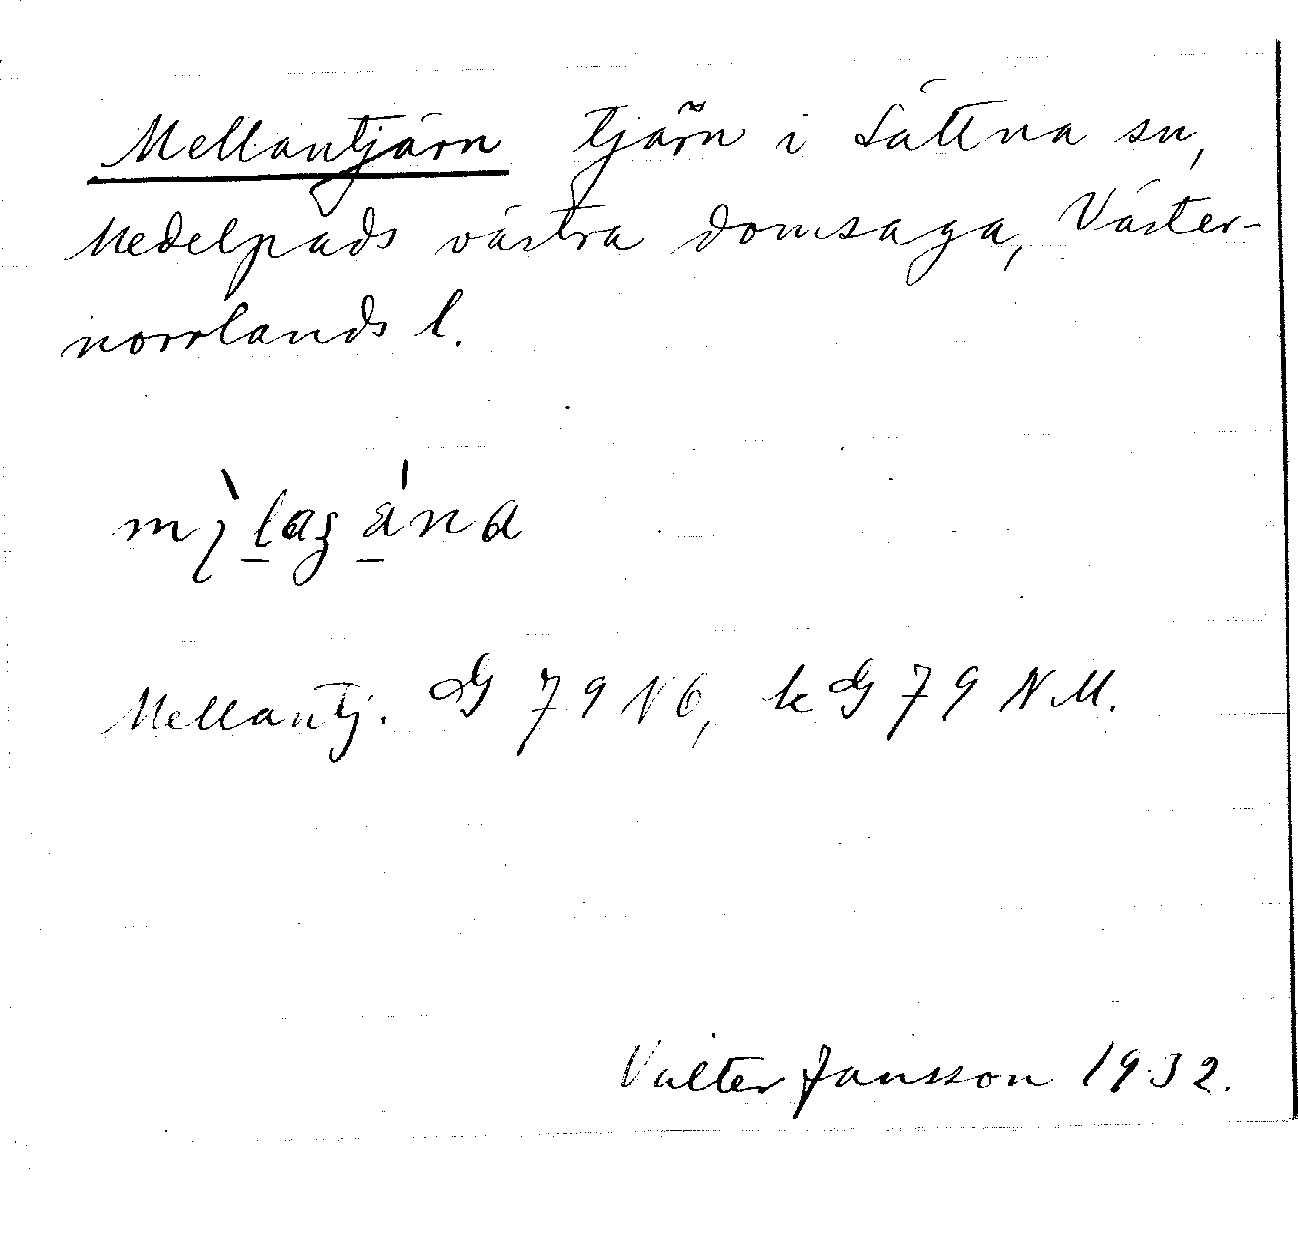 Mellantjärn tjärn i Sättna sn,
Medelpads västra domsaga, Väster-
norrlands l.
Mellantj. G 79 NÖ, k G 79 N.M.
Valter Jansson 1932.